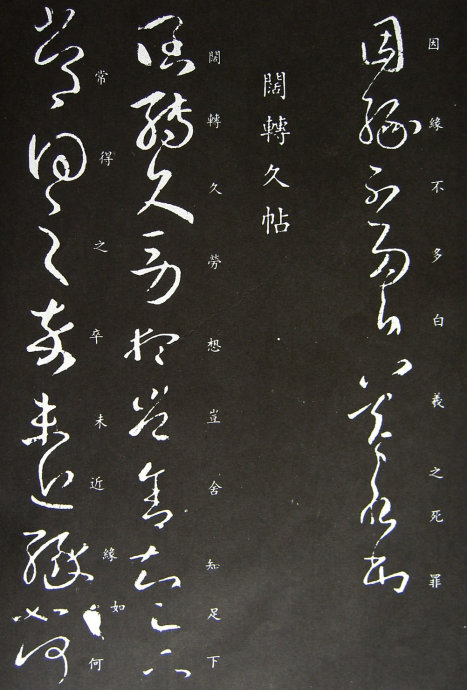 因緣不多白義之死罪
闊轉久帖
闊轉久勞想豈舍知足下
常得之卒未近緣如何